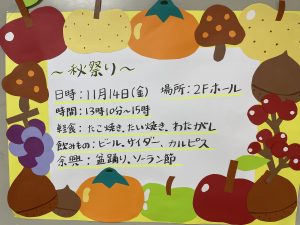 ～秋祭り～
日時：11月14日(金)　場所：2Fホール
時間：13時10分～15時
軽食：たこ焼き、たい焼き、わたがし
飲みもの：ビール、サイダー、カルピス
余興：盆踊り、ソーラン節